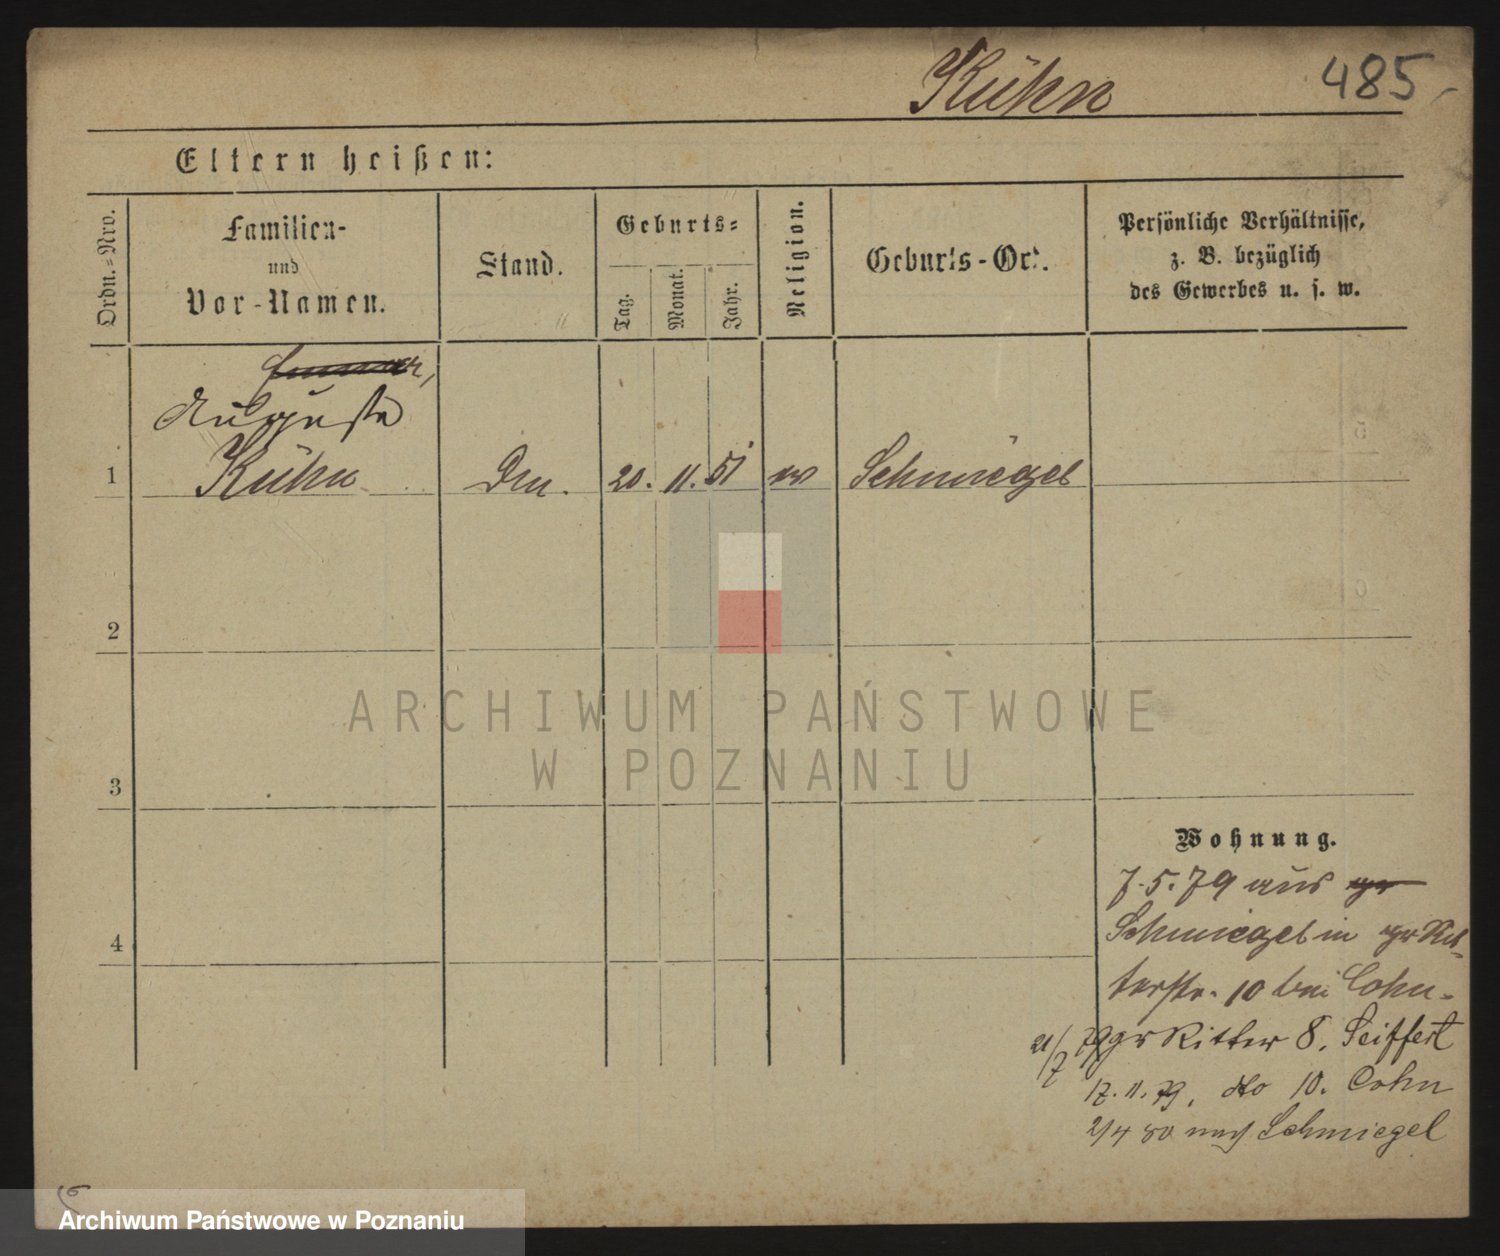 Kühn 485
Eltern heißen:
Ordn.-Nro.
Familien-
und
Vor-Namen.
Stand.
Geburts-
Tag.
Monat.
Jahr.
Religion.
Geburts-Ort.
Persönliche Verhältnisse,
z. B. bezüglich
des Gewerbes u. s. w.
Auguste
1 Kühn 20. 11. 51 ev Schmiegel
2
3
4
Wohnung.
7.5.79 aus gr
Schmiegel in gr Rit-
terstr. 10 bei Cohn.
21/7 79 gr Ritter 8. Seiffert
17.11.79. dto 10. Cohn
2/4 80 nach Schmiegel
ARCHIWUM PAŃSTWOWE
W POZNANIU
Archiwum Państwowe w Poznaniu